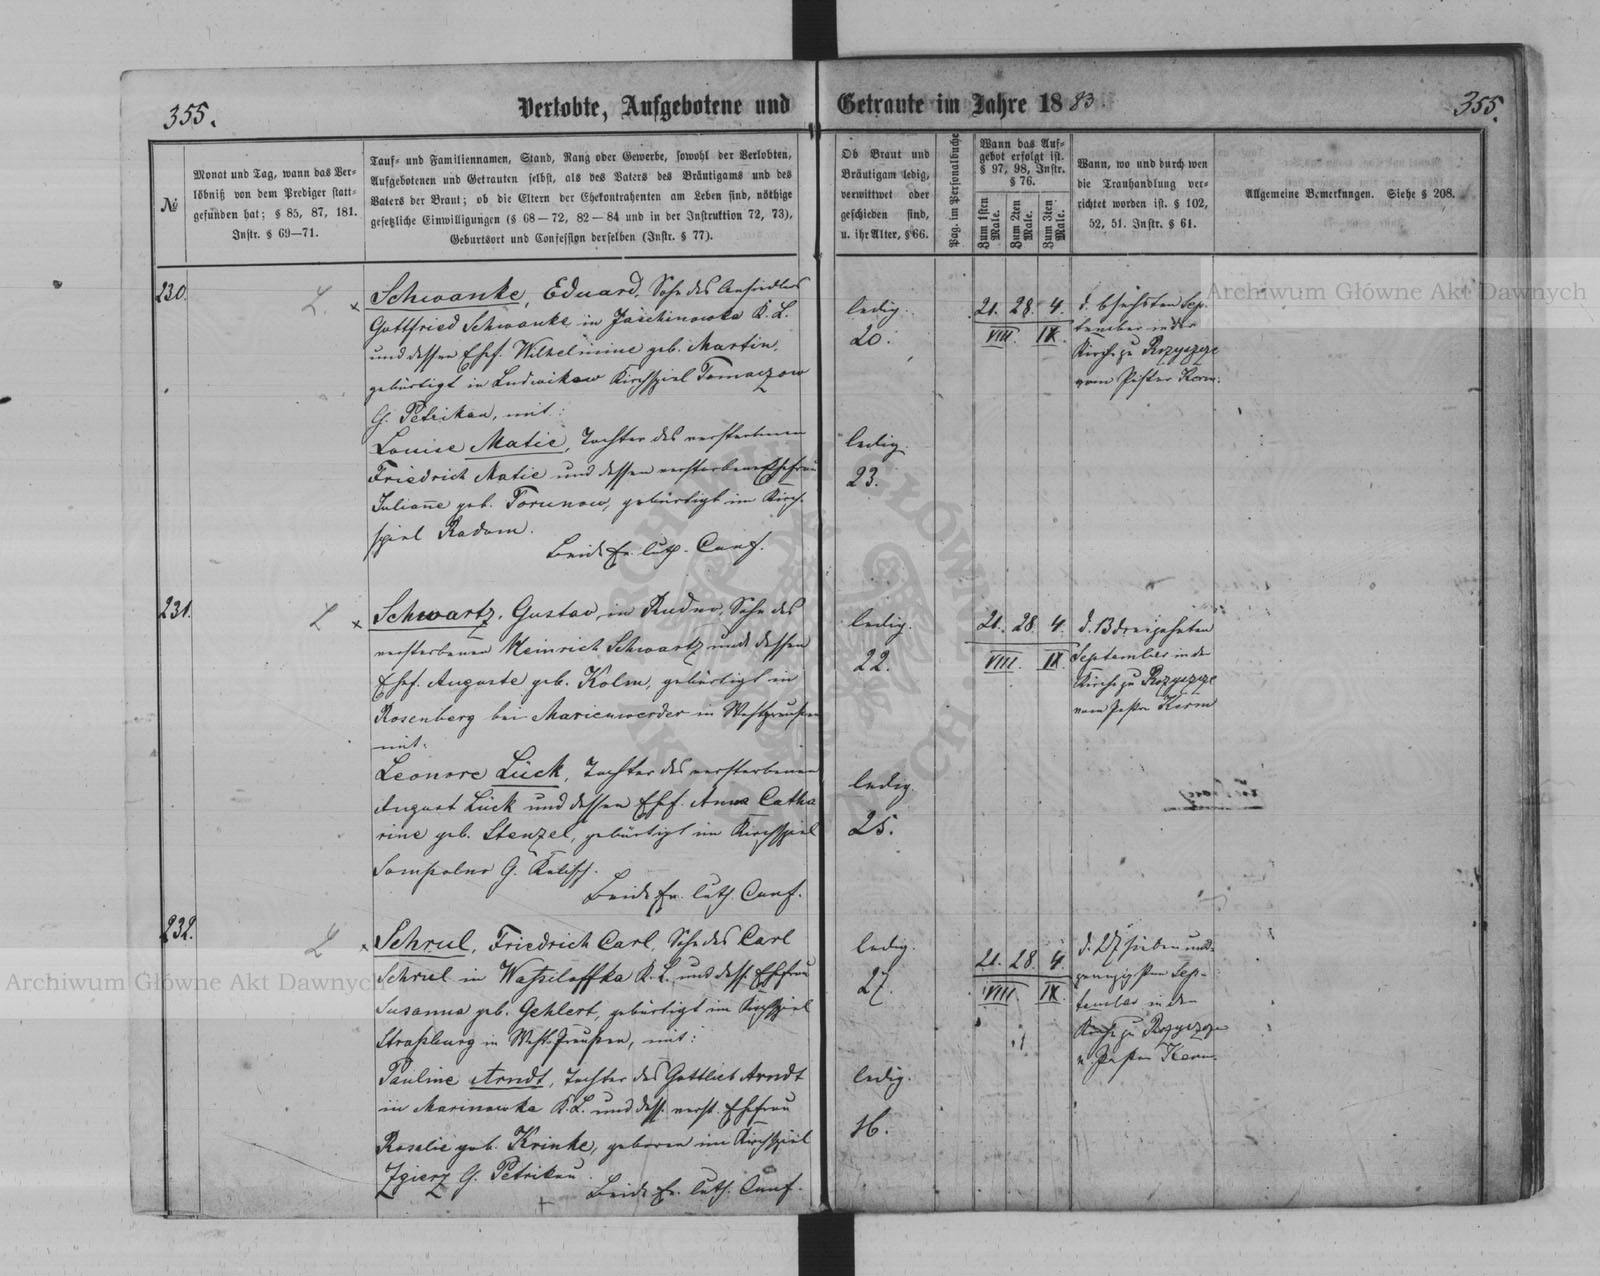 355.
Verlobte, Aufgebotene und
Getraute im Jahre 1883.
355.
№
Monat und Tag, wann das Ver-
löbniß von dem Prediger statt-
gefunden hat; § 85, 87, 181.
Instr. § 69—71.
Tauf- und Familiennamen, Stand, Rang oder Gewerbe, sowohl der Verlobten,
Aufgebotenen und Getrauten selbst, als des Vaters des Bräutigams und des
Vaters der Braut; ob die Eltern der Ehekontrahenten am Leben sind, nöthige
gesetzliche Einwilligungen (§ 68—72, 82—84 und in der Instruktion 72, 73),
Geburtsort und Confession derselben (Instr. § 77).
Ob Braut und
Bräutigam ledig,
verwittwet oder
geschieden sind,
u. ihr Alter, § 66.
Pag. im Personalbuche
Wann das Auf-
gebot erfolgt ist.
§ 97, 98, Instr.
§ 76.
Zum 1sten Male.
Zum 2ten Male.
Zum 3ten Male.
Wann, wo und durch wen
die Trauhandlung ver-
richtet worden ist. § 102,
52, 51. Instr. § 61.
Allgemeine Bemerkungen. Siehe § 208.
230.
L. x
Schwanke, Eduard, Sohn des Ansiedlers
Gottfried Schwanke in Jaschinowka K. L.
und dessen Ehef. Wilhelmine geb. Martin,
gebürtigt in Ludwikow Kirchspiel Tomaczow
G. Petrikau, mit:
Louise Matie, Tochter des verstorbenen
Friedrich Matie und dessen verstorbenen Ehefrau
Julianne geb. Torunow, gebürtigt im Kirch-
spiel Radom.
Beide Ev. luth. Conf.
ledig.
20.
ledig.
23.
21. 28. 4.
VIII. IX.
d. 6 sechsten Sep-
tember in der
Kirche zu Rozyszcze
vom Pastor Kerm.
231.
L x
Schwartz, Gustav, in Rudno, Sohn des
verstorbenen Heinrich Schwartz und dessen
Ehef. Auguste geb. Kolm, gebürtigt in
Rosenberg bei Marienwerder in Westpreußen
mit:
Leonore Lück, Tochter des verstorbenen
August Lück und dessen Ehef. Anna Catha
rine geb. Stenzel, gebürtigt im Kirchspiel
Sompolno G. Kalisch.
Beide Ev. luth. Conf.
ledig.
22.
ledig.
25.
21. 28 4.
VIII. IX.
d. 13 dreizehnten
September in der
Kirche zu Rozyszcze
vom Pastor Kerm
232.
L x
Schrul, Friedrich Carl, Sohn des Carl
Schrul in Waßiloffka K. L. und dess. Ehefrau
Susanna geb. Gehlert, gebürtigt im Kirchspiel
Straßburg in West-Preußen, mit:
Pauline Arndt, Tochter des Gottlieb Arndt
in Marinowka K. L. und dess. verst. Ehefrau
Rosalie geb. Krinke, geboren im Kirchspiel
Zgierz G. Petrikau.
Beide Ev. luth. Conf.
ledig.
27.
ledig.
16.
21. 28. 4.
VIII IX.
d. 27 sieben und
zwanzigsten Sep-
tember in der
Kirche zu Rozyszcze
v. Pastor Kerm.
Archiwum Główne Akt Dawnych
Archiwum Główne Akt Dawnych